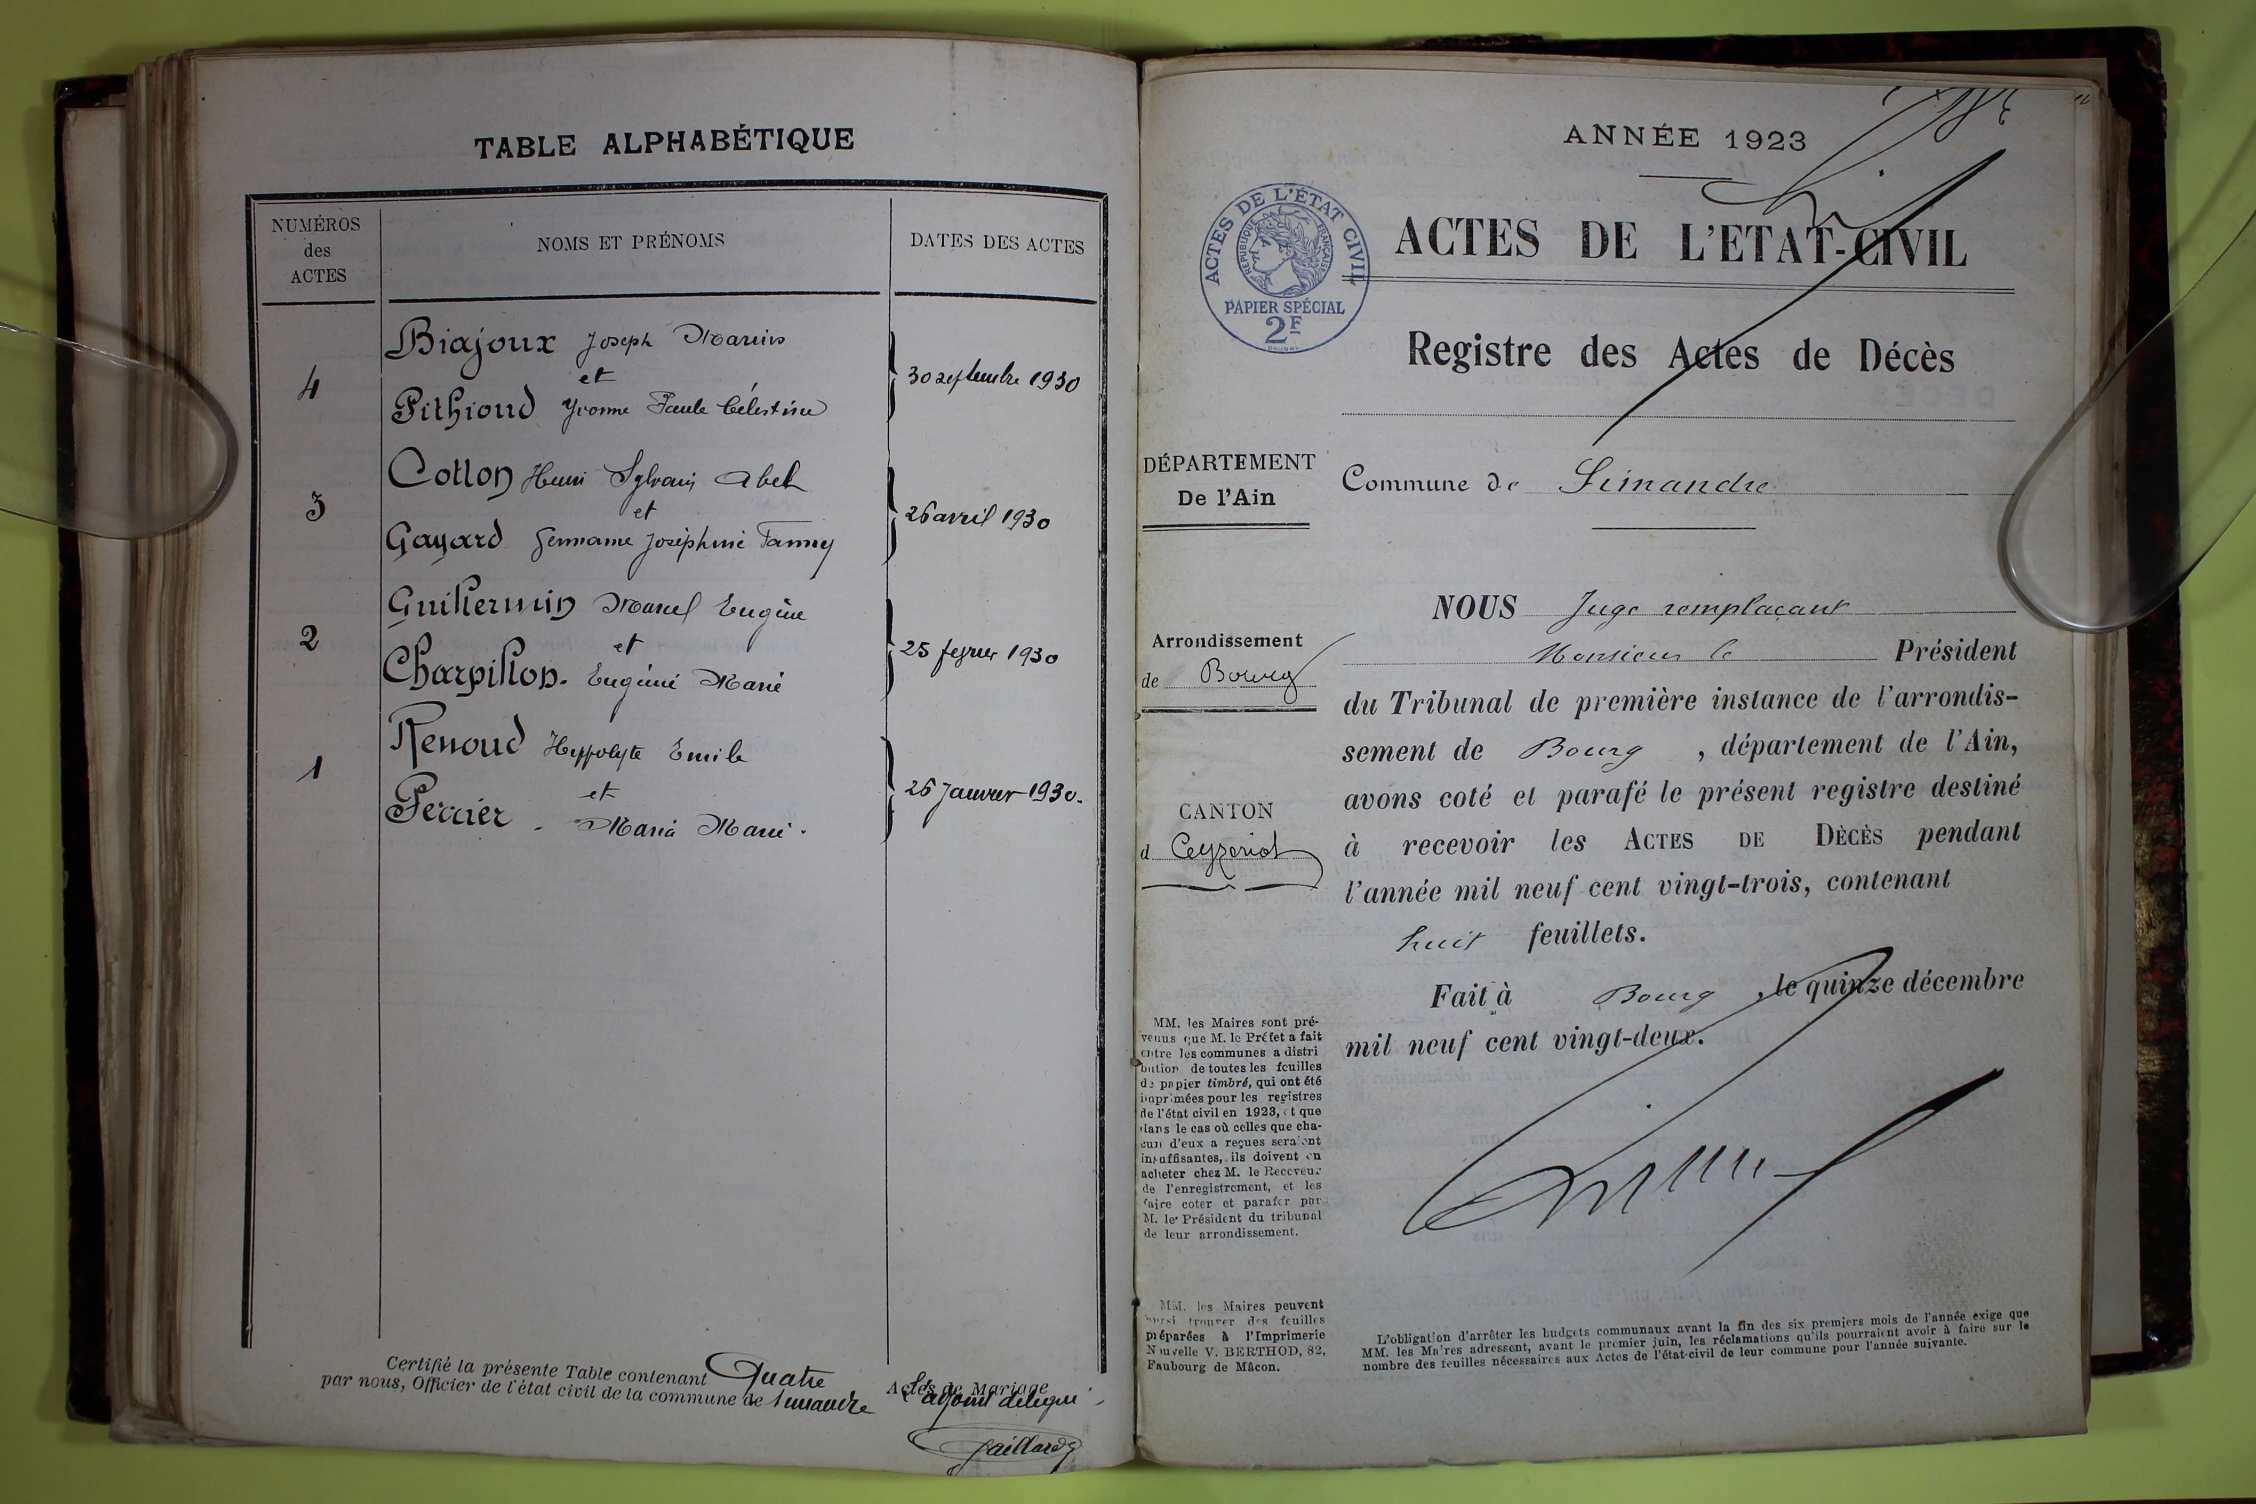 TABLE ALPHABÉTIQUE
NUMÉROS
des
ACTES
NOMS ET PRÉNOMS
DATES DES ACTES
4
Biajoux Joseph Marius
et
Pithioud Yvonne Paule Célestine
30 septembre 1930
3
Cotton Henri Sylvain Abel
et
Gayard Germaine Joséphine Fanny
26 avril 1930
2
Guillermin Marcel Eugène
et
Charpillon. Eugénie Marie
25 fevrier 1930
1
Renoud Hyppolyte Emile
et
Perrier - Maria Marie.
26 Janvier 1930.
Certifié la présente Table contenant Quatre Actes de Mariage
par nous, Officier de l'état civil de la commune de Simandre
L'adjoint délégué
Gaillard
ANNÉE 1923
ACTES DE L'ÉTAT CIVIL
RÉPUBLIQUE FRANÇAISE
PAPIER SPÉCIAL
2F
ACTES DE L'ETAT-CIVIL
Registre des Actes de Décès
DÉPARTEMENT
De l'Ain
Commune de Simandre
Arrondissement
de Bourg
CANTON
d Ceyzeriat
NOUS Juge remplaçant
Monsieur le Président
du Tribunal de première instance de l'arrondis-
sement de Bourg, département de l'Ain,
avons coté et parafé le présent registre destiné
à recevoir les ACTES DE DÈCÈS pendant
l'année mil neuf cent vingt-trois, contenant
huit feuillets.
Fait à Bourg, le quinze décembre
mil neuf cent vingt-deux.
MM. les Maires sont pré-
venus que M. le Préfet a fait
entre les communes a distri
bution de toutes les feuilles
de papier timbré, qui ont été
imprimées pour les registres
de l'état civil en 1923, et que
dans le cas où celles que cha-
cun d'eux a reçues seraient
insuffisantes, ils doivent en
acheter chez M. le Receveur
de l'enregistrement, et les
faire coter et parafer par
M. le Président du tribunal
de leur arrondissement.
MM. les Maires peuvent
aussi trouver des feuilles
préparées à l'Imprimerie
Nouvelle V. BERTHOD, 82,
Faubourg de Mâcon.
L'obligation d'arrêter les budgets communaux avant la fin des six premiers mois de l'année exige que
MM. les Maires adressent, avant le premier juin, les réclamations qu'ils pourraient avoir à faire sur le
nombre des feuilles nécessaires aux Actes de l'état-civil de leur commune pour l'année suivante.